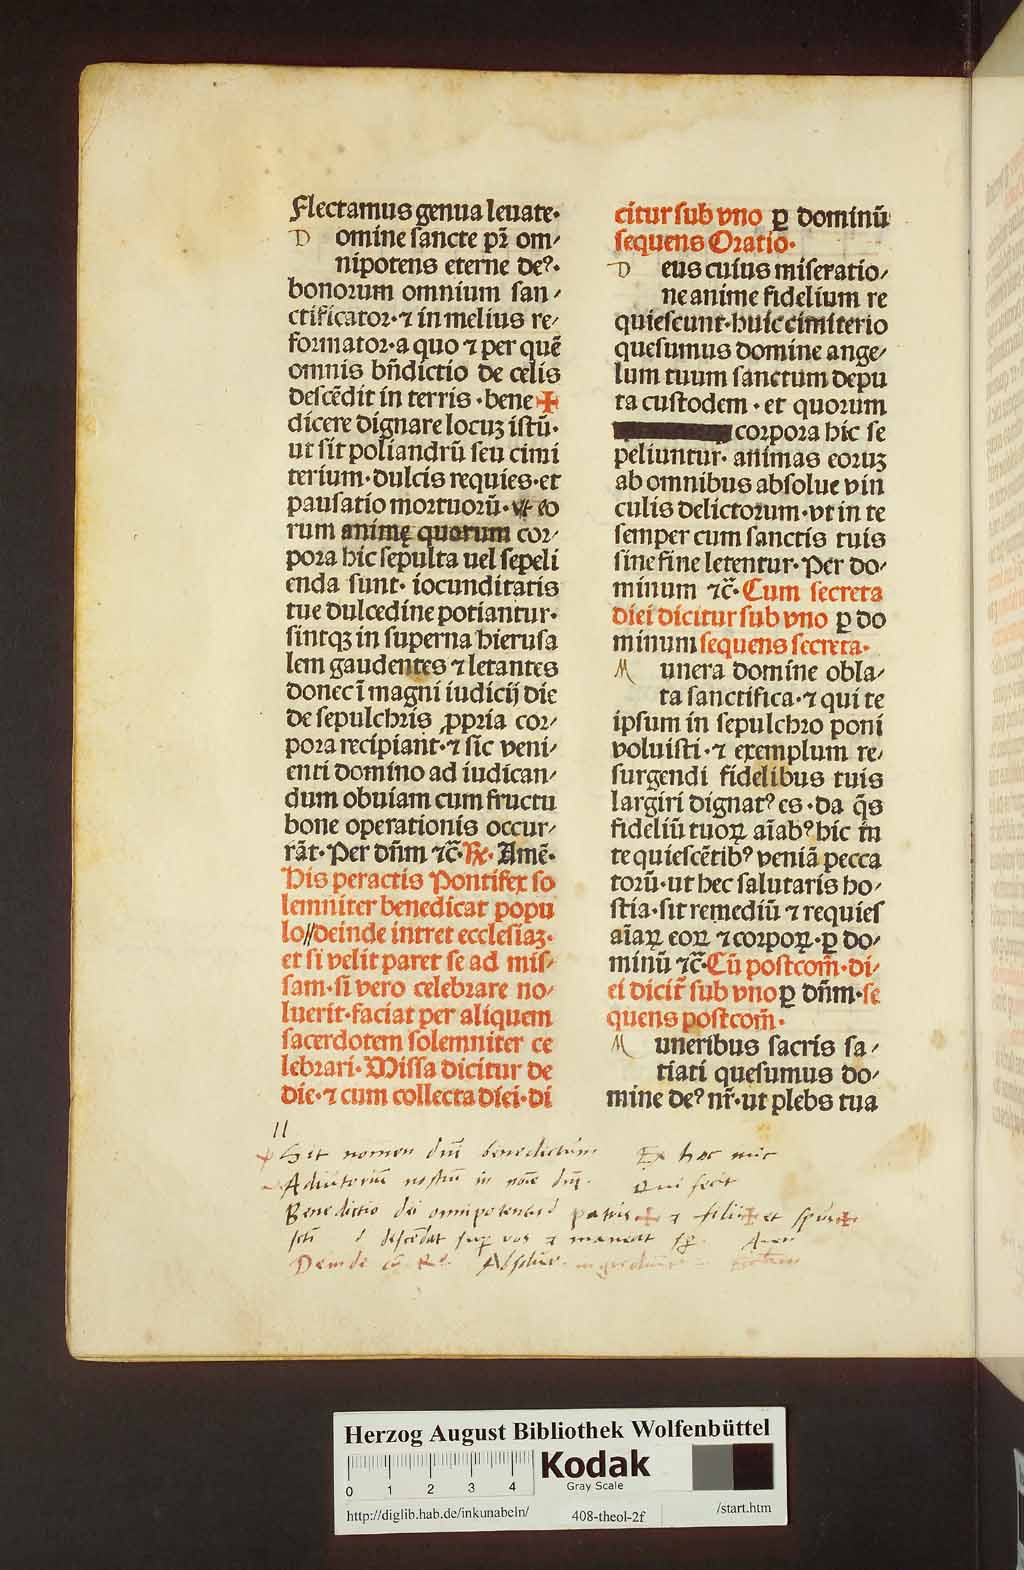 Flectamus genua leuate·
D omine sancte pr̄ om⸗
nipotens eterne deꝰ·
bonorum omnium san⸗
ctificator·⁊ in melius re⸗
formator·a quo ⁊ per quē
omnis bn̄dictio de celis
descēdit in terris·bene✠
dicere dignare locuꝫ istū·
ut sit poliandrū seu cimi
terium·dulcis requies·et
pausatio mortuorū· vt eo
rum animę quorum cor⸗
pora hic sepulta uel sepeli
enda sunt· iocunditatis
tue dulcedine potiantur·
sintqꝫ in superna hierusa
lem gaudentes ⁊ letantes
donec ī magni iudicij die
de sepulchris ꝓpria cor⸗
pora recipiant·⁊ sic veni⸗
enti domino ad iudican⸗
dum obuiam cum fructu
bone operationis occur⸗
rāt·Per dn̄m ⁊c̄·℞· Amē·
His peractis Pontifex so
lemniter benedicat popu
lo//deinde intret ecclesiaꝫ·
et si velit paret se ad mis⸗
sam·si vero celebrare no⸗
luerit·faciat per aliquem
sacerdotem solemniter ce
lebrari·Missa dicitur de
die·⁊ cum collecta diei·di
citur sub vno ꝑ dominū
sequens Oratio·
D eus cuius miseratio⸗
ne anime fidelium re
quiescunt·huic cimiterio
quesumus domine ange⸗
lum tuum sanctum depu
ta custodem·et quorum
corpora hic se
peliuntur· animas eoruꝫ
ab omnibus absolue vin
culis delictorum·vt in te
semper cum sanctis tuis
sine fine letentur·Per do⸗
minum ⁊c̄·Cum secreta
diei dicitur sub vno ꝑ do
minum sequens secreta·
M unera domine obla⸗
ta sanctifica·⁊ qui te
ipsum in sepulchro poni
voluisti·⁊ exemplum re⸗
surgendi fidelibus tuis
largiri dignatꝰ es·da q̄s
fideliū tuoꝝ aīabꝰ hic in
te quiescētibꝰ veniā pecca
torū·ut hec salutaris ho⸗
stia·sit remediū ⁊ requies
aīaꝝ eoꝝ ⁊ corpoꝝ·ꝑ do⸗
minū ⁊c̄·Cū postcom̄·di⸗
ei dicit̄ sub vno ꝑ dn̄m·se
quens postcom̄·
M uneribus sacris sa⸗
tiati quesumus do⸗
mine deꝰ nr̄·ut plebs tua
//
Sit nomen dn̄i benedictum Ex hoc nūc
Adiutoriū nostrū in noīe dn̄j. Qui fecit
Benedictio dei omnipotentis patris ✠ ⁊ filii ✠ et spūs ✠
scti descēdat sup̄ vos ⁊ maneat sp̄. Amen
Deinde Absolue
Herzog August Bibliothek Wolfenbüttel
0 1 2 3 4
Kodak
Gray Scale
http://diglib.hab.de/inkunabeln/ 408-theol-2f /start.htm